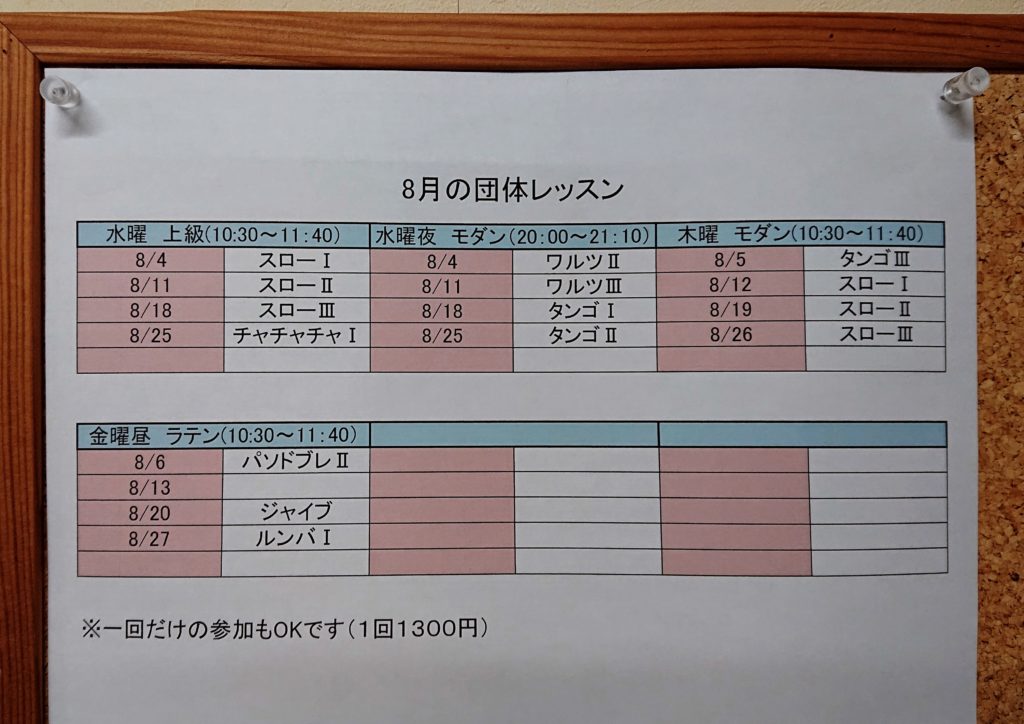 8月の団体レッスン
水曜　上級(10:30～11:40) 水曜夜　モダン(20:00～21:10) 木曜　モダン(10:30～11:40)
8/4 スローⅠ 8/4 ワルツⅡ 8/5 タンゴⅢ
8/11 スローⅡ 8/11 ワルツⅢ 8/12 スローⅠ
8/18 スローⅢ 8/18 タンゴⅠ 8/19 スローⅡ
8/25 チャチャチャⅠ 8/25 タンゴⅡ 8/26 スローⅢ
金曜昼　ラテン(10:30～11:40)
8/6 パソドブレⅡ
8/13
8/20 ジャイブ
8/27 ルンバⅠ
※一回だけの参加もOKです(1回1300円)